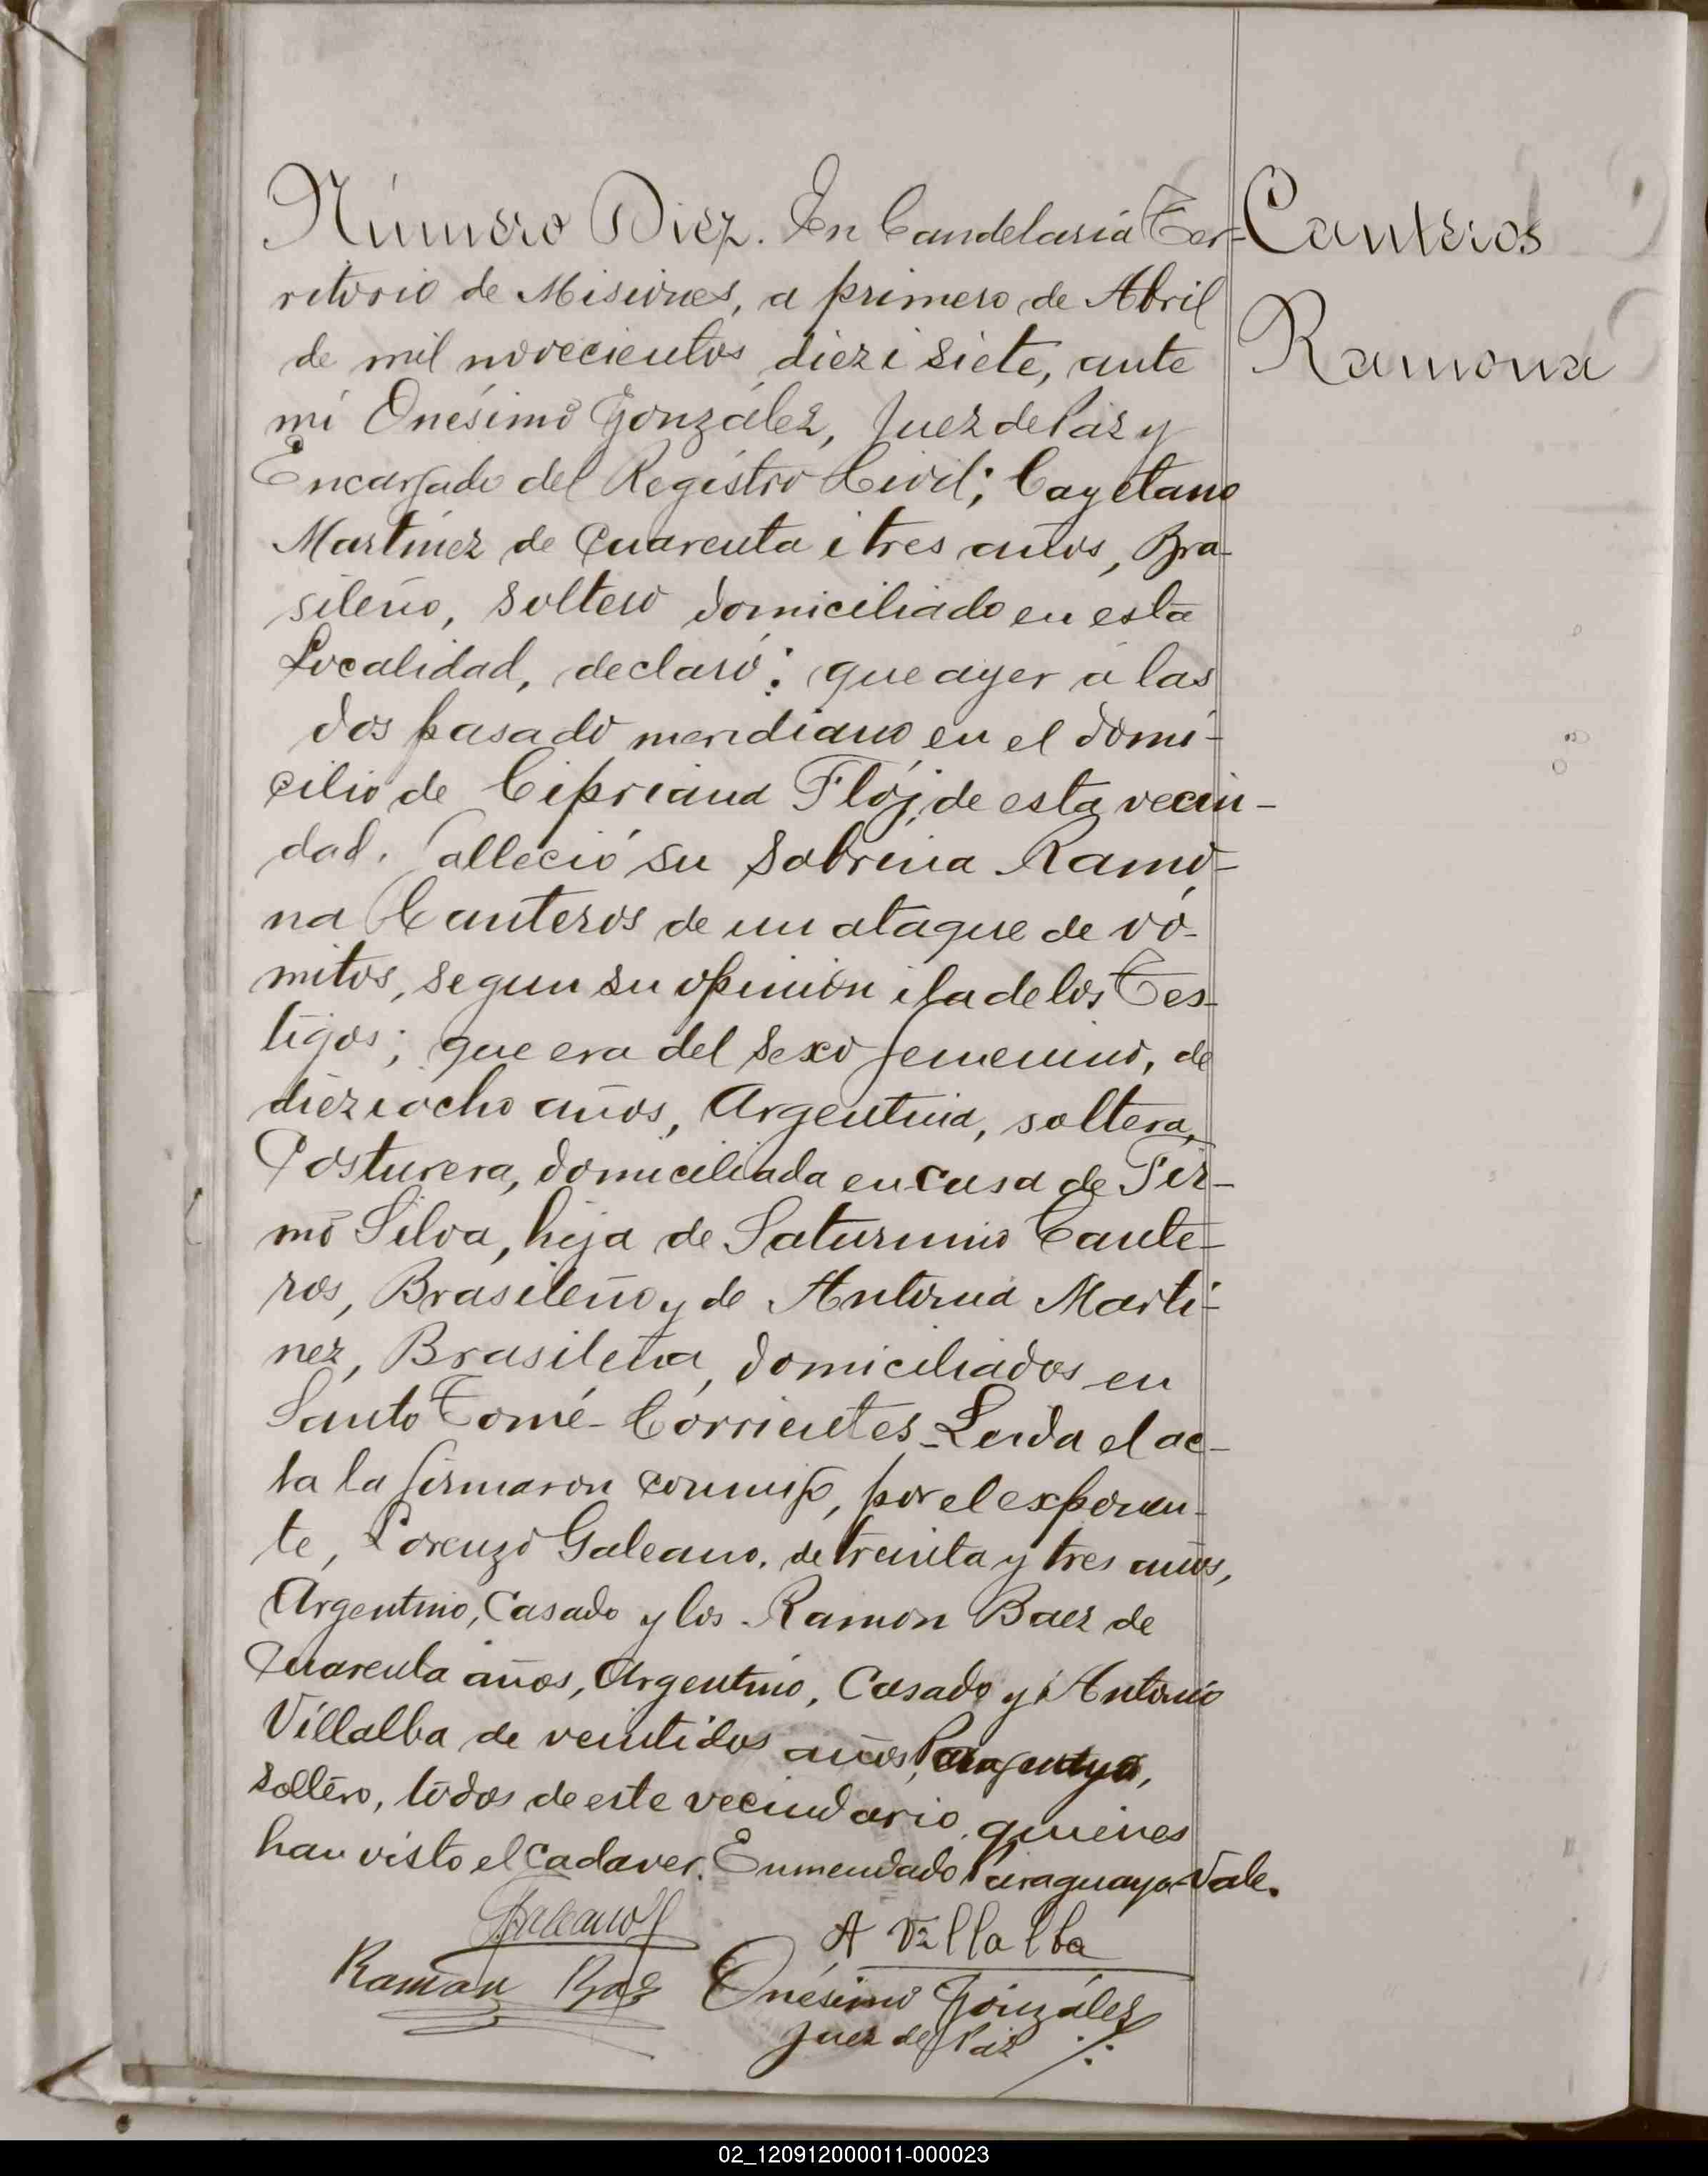 Número Diez. En Candelaria Ter-
ritorio de Misiones, a primero de Abril
de mil novecientos diez i siete, ante
mi Onésimo González, Juez de Paz y
Encargado del Registro Civil; Cayetano
Martinez de cuarenta i tres años, Bra-
sileño, soltero domiciliado en esta
Localidad, declaró: que ayer a las
dos pasado meridiano en el domi-
cilio de Cipriana de esta vecin-
dad. falleció su sobrina Ramo-
na Canteros de un ataque de vó-
mitos, segun su opinión i la de los Tes-
tigos; que era del sexo femenino, de
diez i ocho años, Argentina, soltera,
Costurera, domiciliada en casa de Fir-
mo Silva, hija de Saturnino Cante-
ros, Brasileño y de Antonia Marti-
nez, Brasileña, domiciliados en
Santo Tomé - Corrientes - Leida el ac-
ta la firmaron conmigo, por el exponen-
te, Lorenzo Galeano, de treinta y tres años,
Argentino, Casado y los Ramon Baez de
Cuarenta años, Argentino, Casado y Antonio
Villalba de veintidos años, Paraguayo,
soltero, todos de este vecindario quienes
han visto el cadaver. Enmendado Paraguayo - Vale.
Galeano
A Villalba
Ramon Baez
Onésimo González
Juez de Paz
Canteros
Ramona
02_120912000011-000023